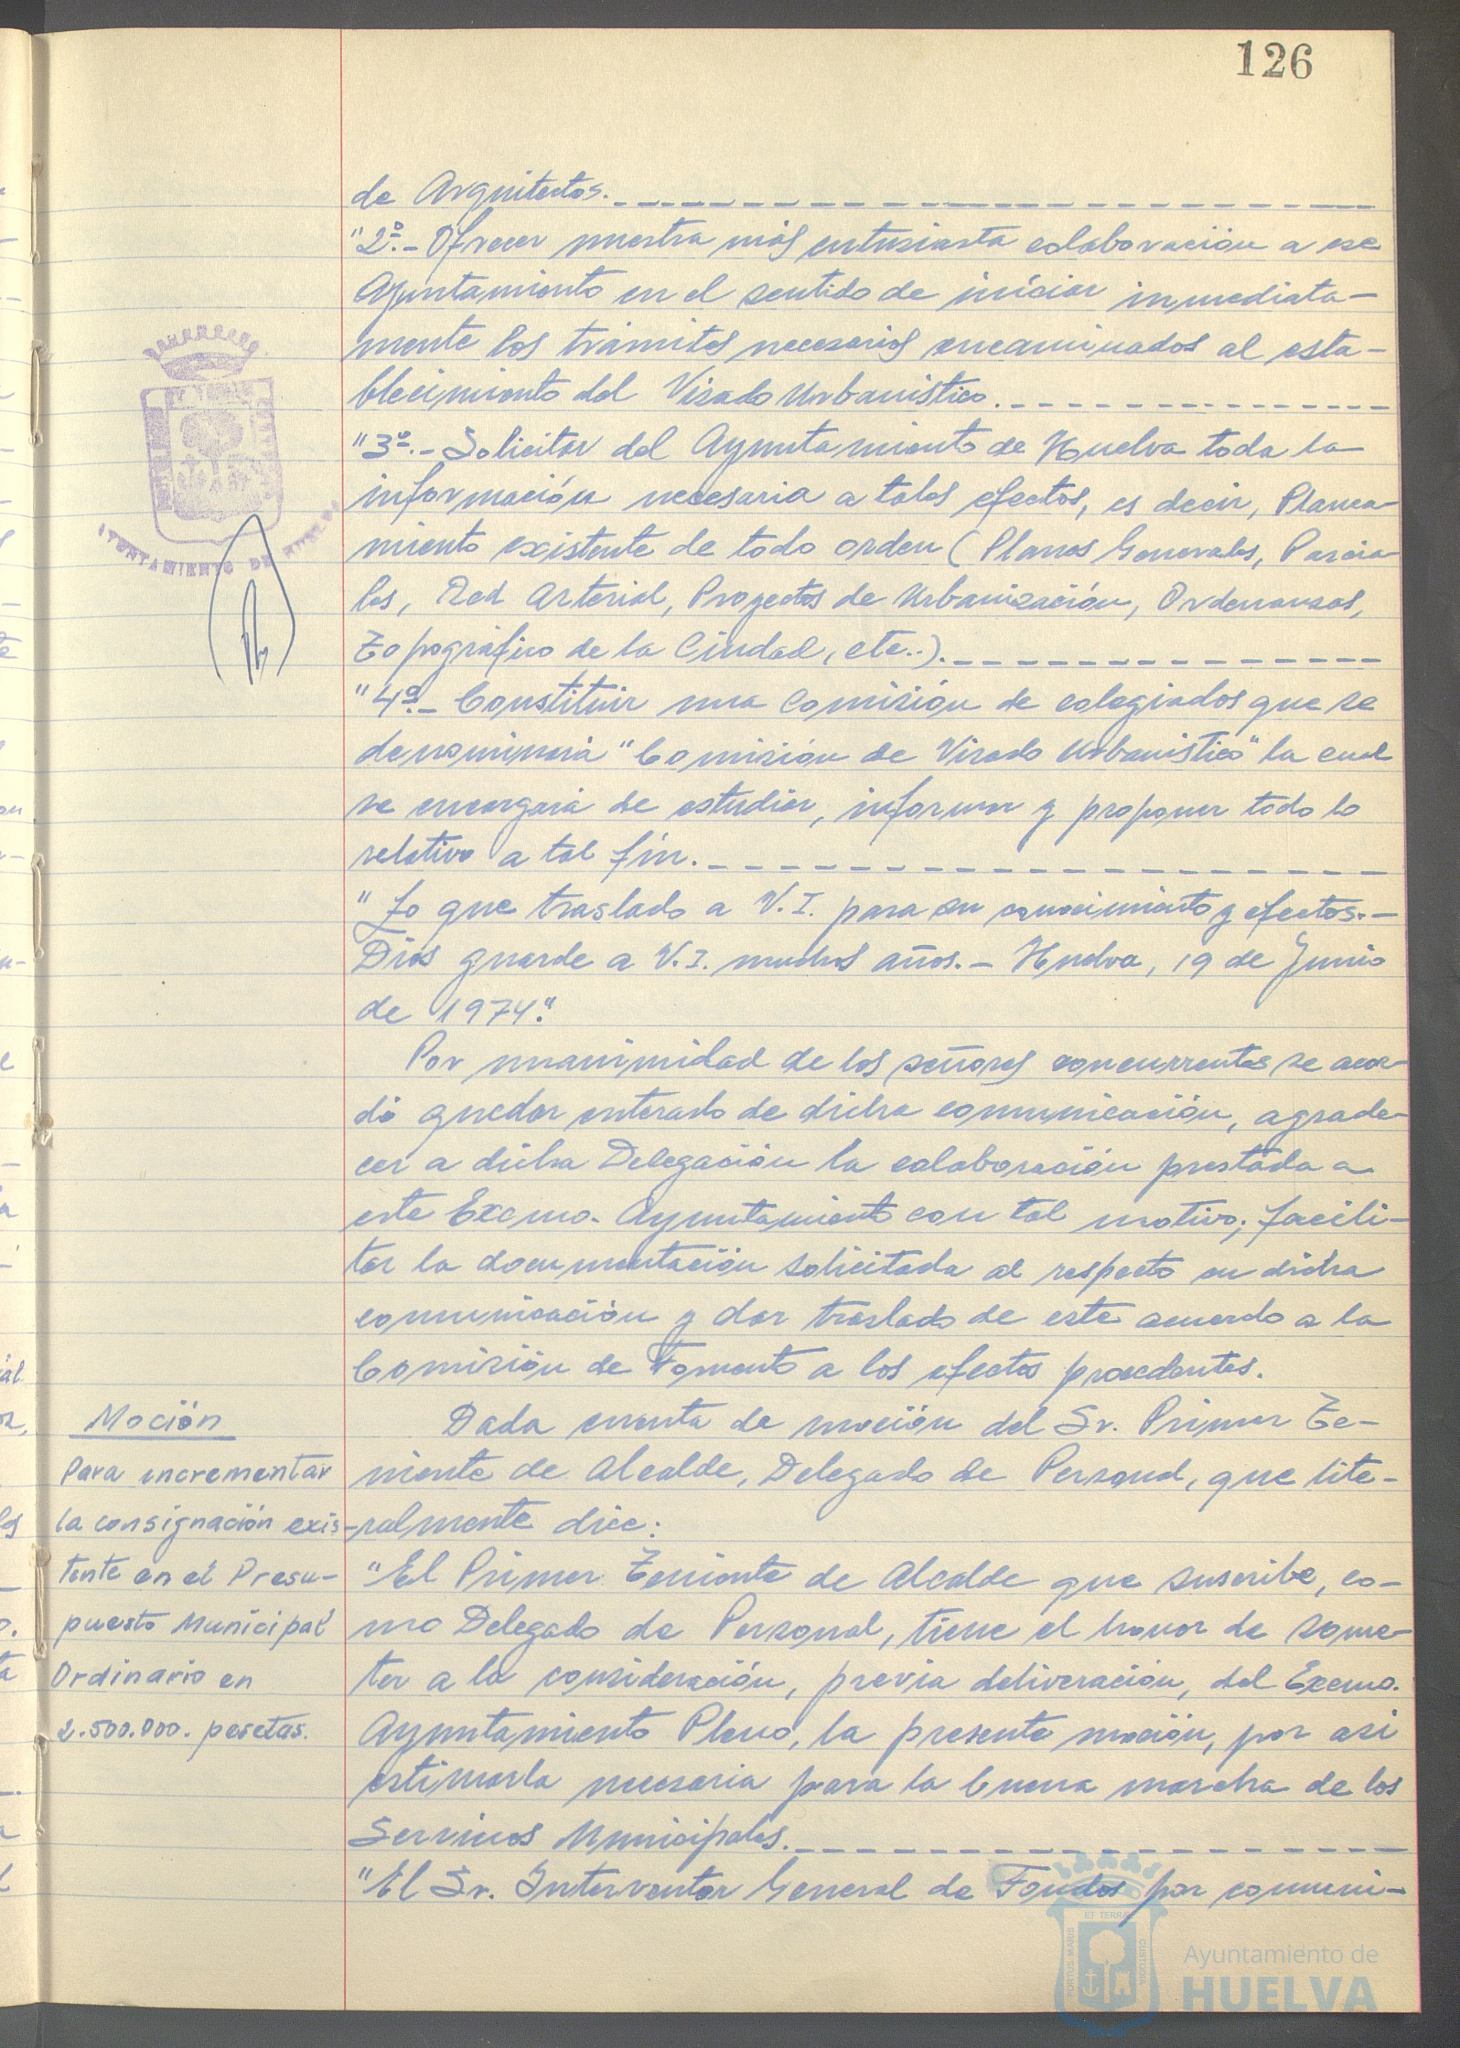 126
de Arquitectos.
"2º.- Ofrecer nuestra más entusiasta colaboración a ese
Ayuntamiento en el sentido de iniciar inmediata-
mente los trámites necesarios encaminados al esta-
blecimiento del Visado Urbanístico.
"3º.- Solicitar del Ayuntamiento de Huelva toda la
información necesaria a tales efectos, es decir, Planea-
miento existente de todo orden (Planes Generales, Parcia-
les, Red Arterial, Proyectos de Urbanización, Ordenanzas,
Topográfico de la Ciudad, etc..).
"4º.- Constituir una Comisión de colegiados que se
denominará "Comisión de Visado Urbanístico" la cual
se encargará de estudiar, informar y proponer todo lo
relativo a tal fin.
"Lo que traslado a V.I. para su conocimiento y efectos.-
Dios guarde a V.I. muchos años.- Huelva, 19 de Junio
de 1974".
Por unanimidad de los señores concurrentes se acor-
dó quedar enterado de dicha comunicación, agrade-
cer a dicha Delegación la colaboración prestada a
este Excmo. Ayuntamiento con tal motivo; facili-
tar la documentación solicitada al respecto en dicha
comunicación y dar traslado de este acuerdo a la
Comisión de Fomento a los efectos procedentes.
Moción
Para incrementar
la consignación exis-
tente en el Presu-
puesto Municipal
Ordinario en
2.500.000. pesetas.
Dada cuenta de moción del Sr. Primer Te-
niente de Alcalde, Delegado de Personal, que lite-
ralmente dice:
"El Primer Teniente de Alcalde que suscribe, co-
mo Delegado de Personal, tiene el honor de some-
ter a la consideración, previa deliveración, del Excmo.
Ayuntamiento Pleno, la presente moción, por asi
estimarla necesaria para la buena marcha de los
Servicios Municipales.
"El Sr. Interventor General de Fondos por comuni-
AYUNTAMIENTO DE HUELVA
PORTUS MARIS
ET TERRAE
CUSTODIA
Ayuntamiento de
HUELVA